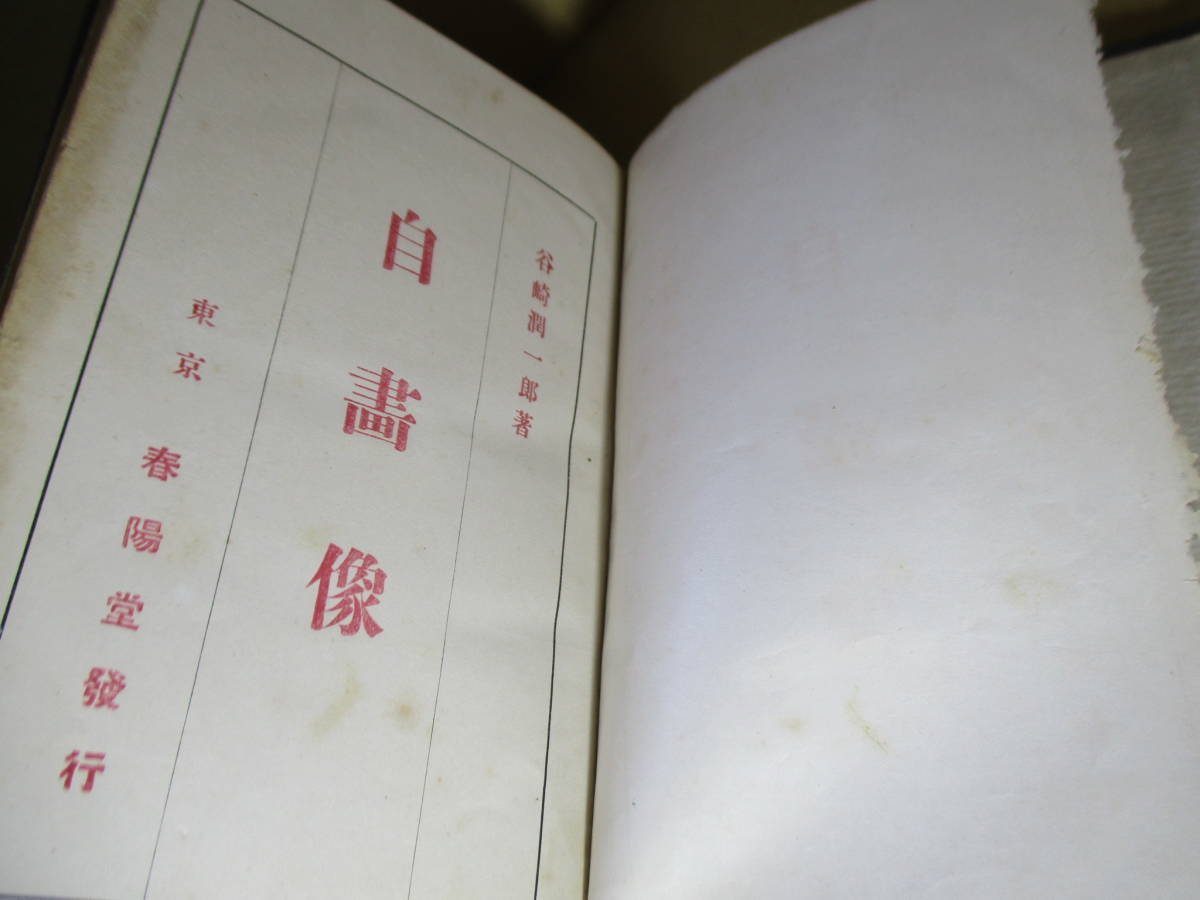 谷崎潤一郎著
自畫像
東京 春陽堂發行